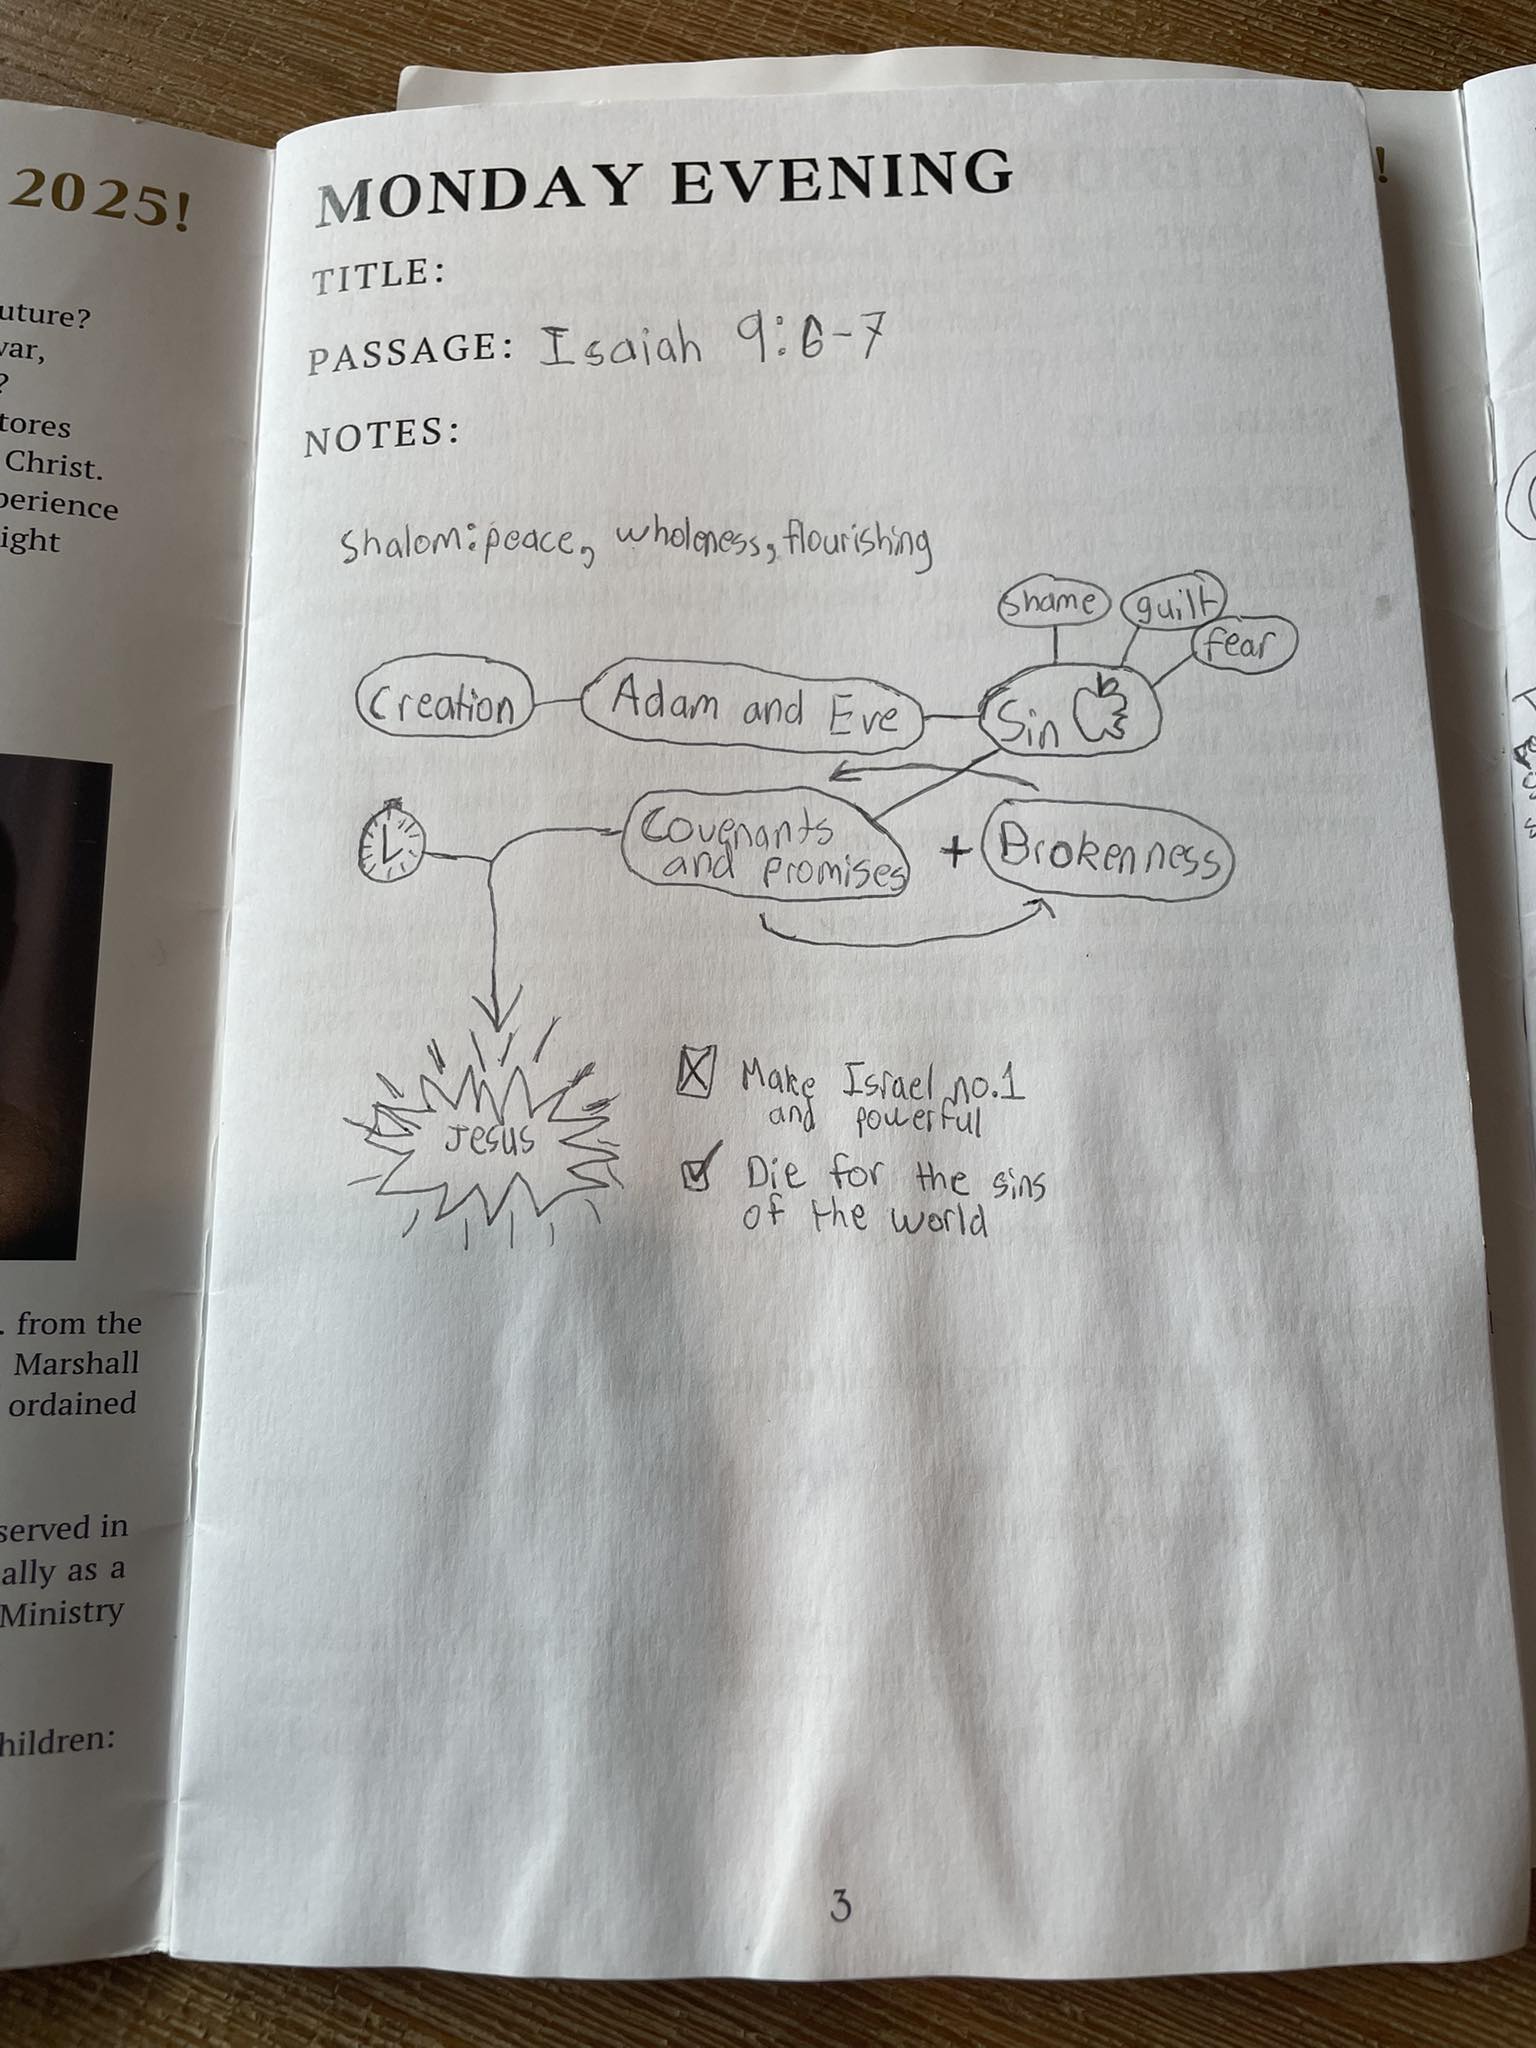 2025!
uture?
var,
?
tores
Christ.
perience
ight
. from the
Marshall
ordained
served in
ally as a
Ministry
hildren:
MONDAY EVENING
TITLE:
PASSAGE: Isaiah 9:6-7
NOTES:
Shalom: peace, wholeness, flourishing
shame
guilt
fear
Creation
Adam and Eve
Sin
Covenants
and promises
+
Brokenness
Jesus
Make Israel no.1
and powerful
Die for the sins
of the world
3
!